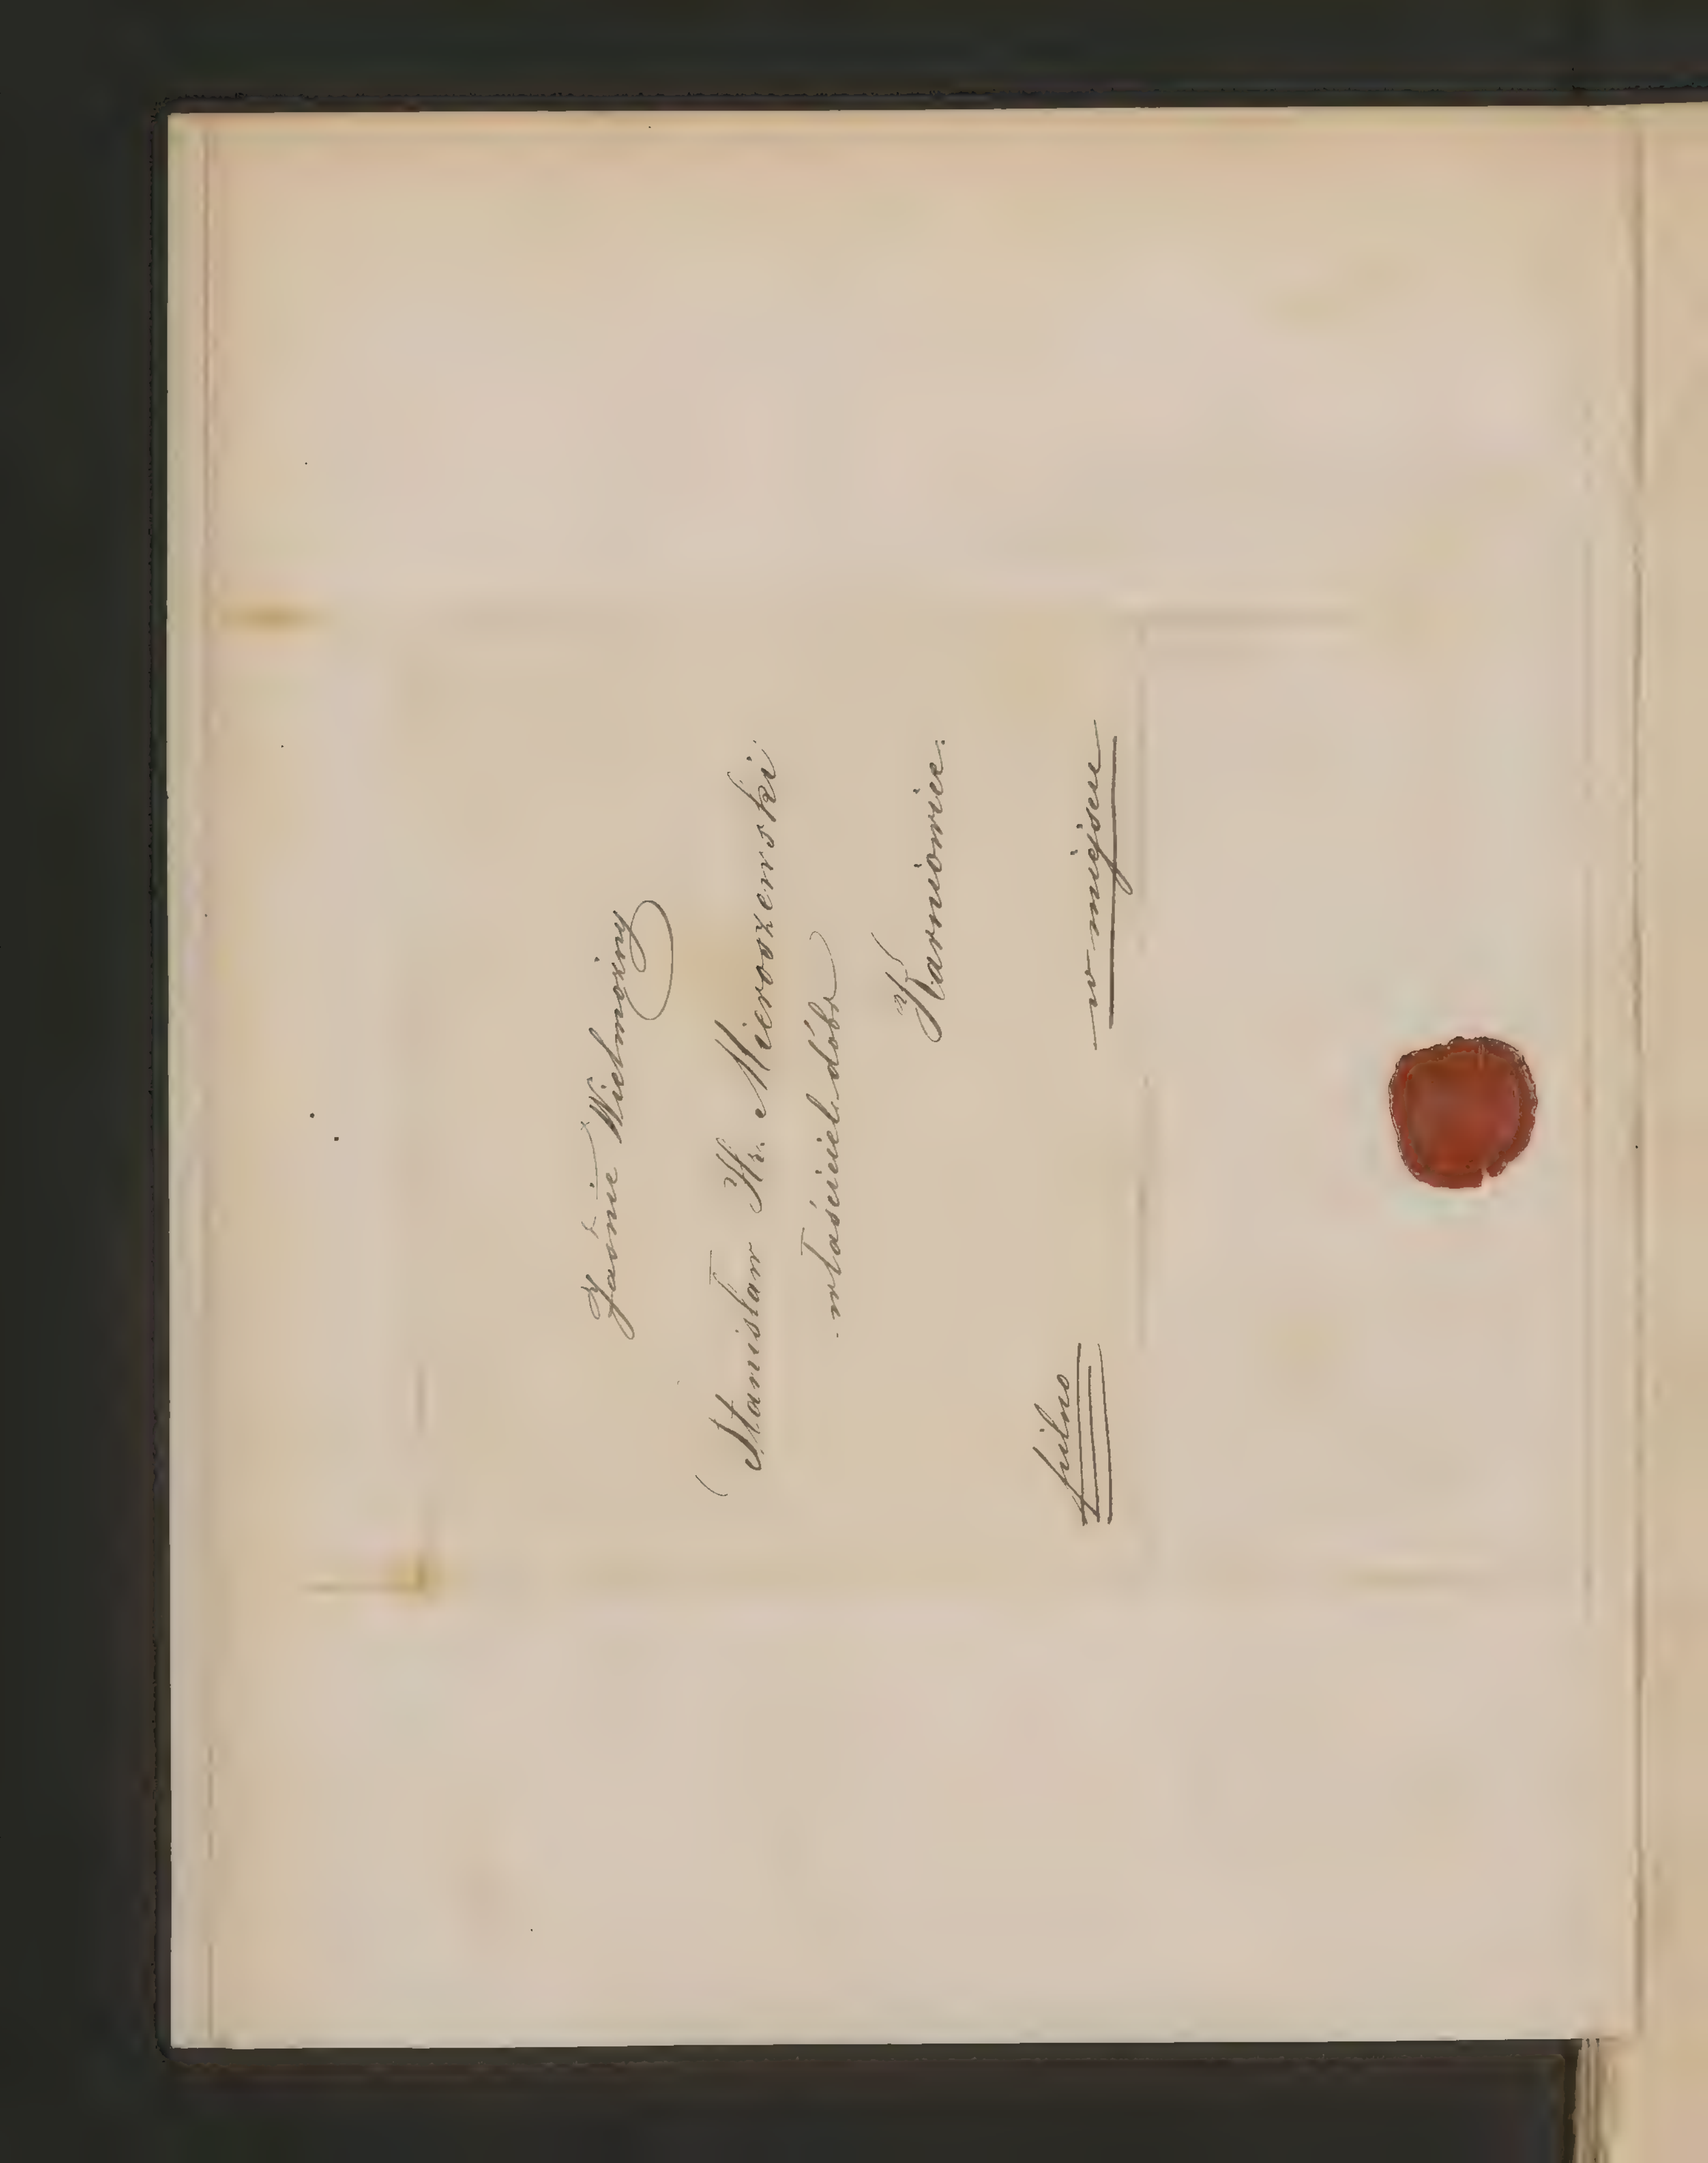 Jaśnie Wielmożny
Stanisław Hr. Mieroszewski
właściciel dóbr
Karniowice.
w miejscu
pilno